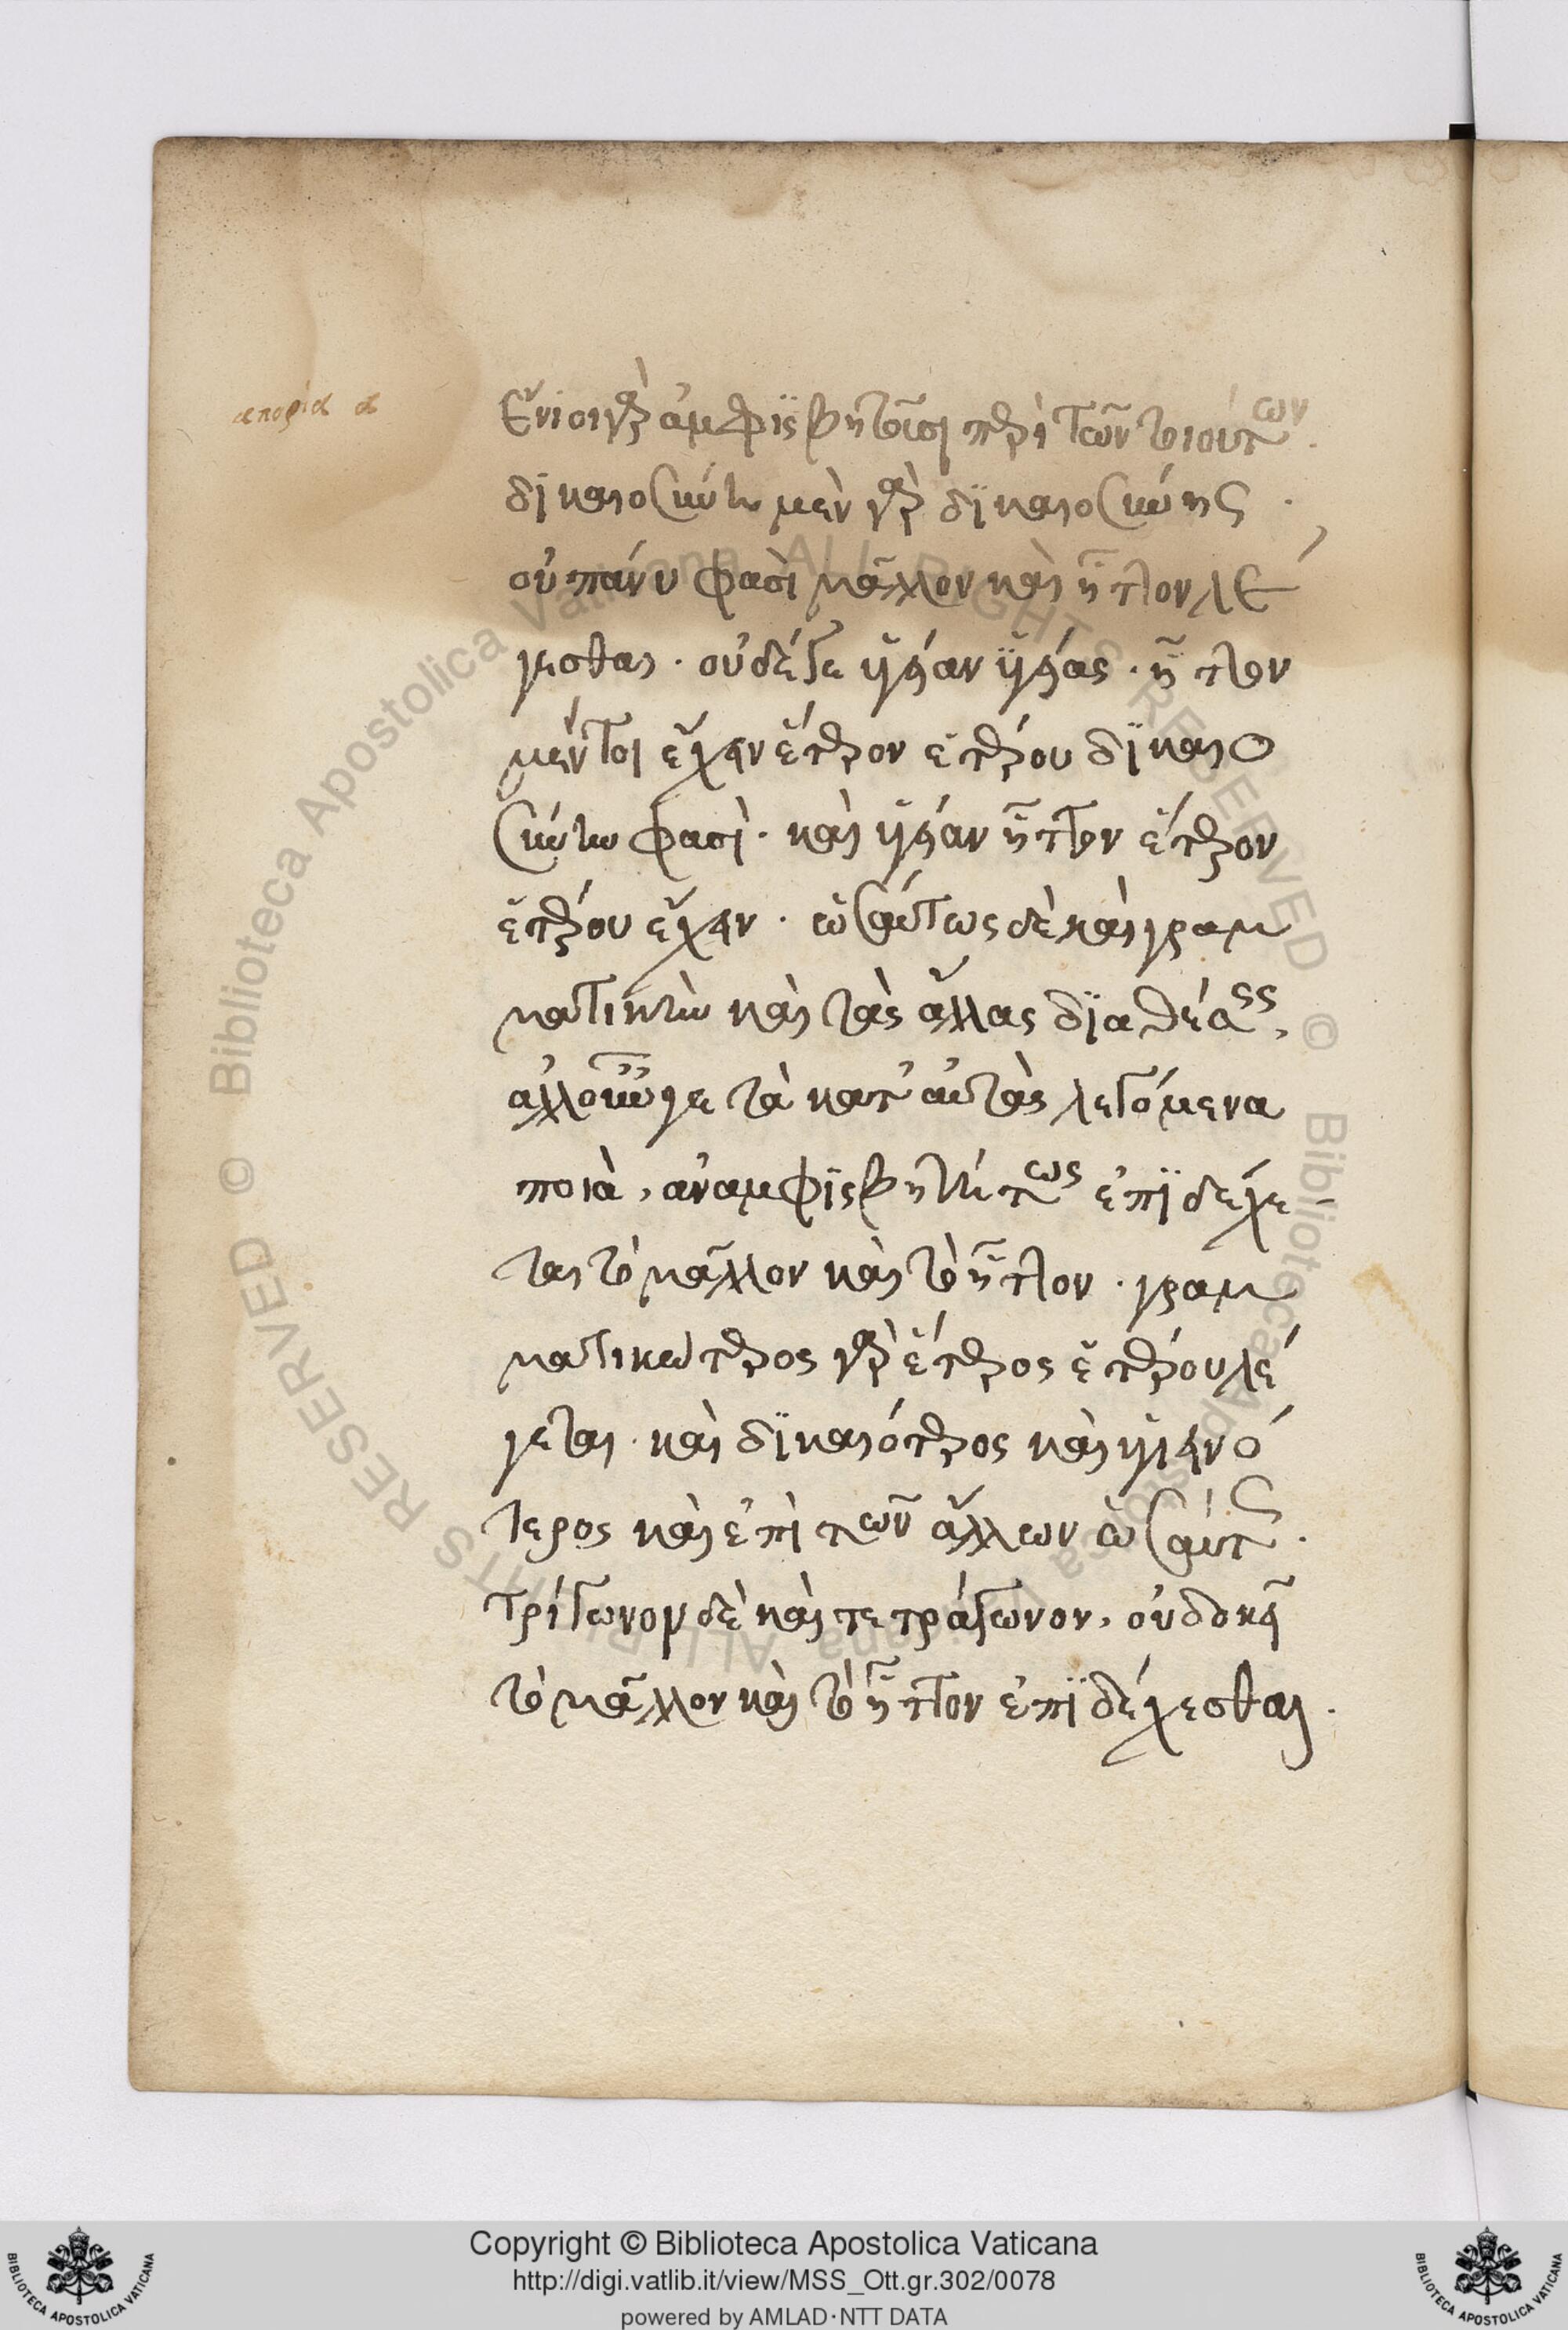 ἀπορία α
Ἔνιοι γὰρ ἀμφισβητοῦσι περὶ τῶν τοιούτων.
δικαιοσύνην μὲν γὰρ δικαιοσύνης .
οὐ πάνυ φασὶ μᾶλλον καὶ ἧττον λέ
γεσθαι . οὐδέ γε ὑγείαν ὑγείας . ἧττον
μέντοι ἔχειν ἕτερον ἑτέρου δικαιο
σύνην φασὶ . καὶ ὑγείαν ἧττον ἕτερον
ἑτέρου ἔχειν . ὡσαύτως δὲ καὶ γραμ
ματικὴν καὶ τὰς ἄλλας διαθέσεις,
ἀλλ' οὖν γε τὰ κατ' αὐτὰς λεγόμενα
ποιὰ, ἀναμφισβητήτως ἐπιδέχε
ται τὸ μᾶλλον καὶ τὸ ἧττον . γραμ
ματικώτερος γὰρ ἕτερος ἑτέρου λέ
γεται . καὶ δικαιότερος καὶ ὑγιεινό
τερος καὶ ἐπὶ τῶν ἄλλων ὡσαύτως .
τρίγωνον δὲ καὶ τετράγωνον, οὐ δοκεῖ
τὸ μᾶλλον καὶ τὸ ἧττον ἐπιδέχεσθαι .
Copyright © Biblioteca Apostolica Vaticana
http://digi.vatlib.it/view/MSS_Ott.gr.302/0078
powered by AMLAD·NTT DATA